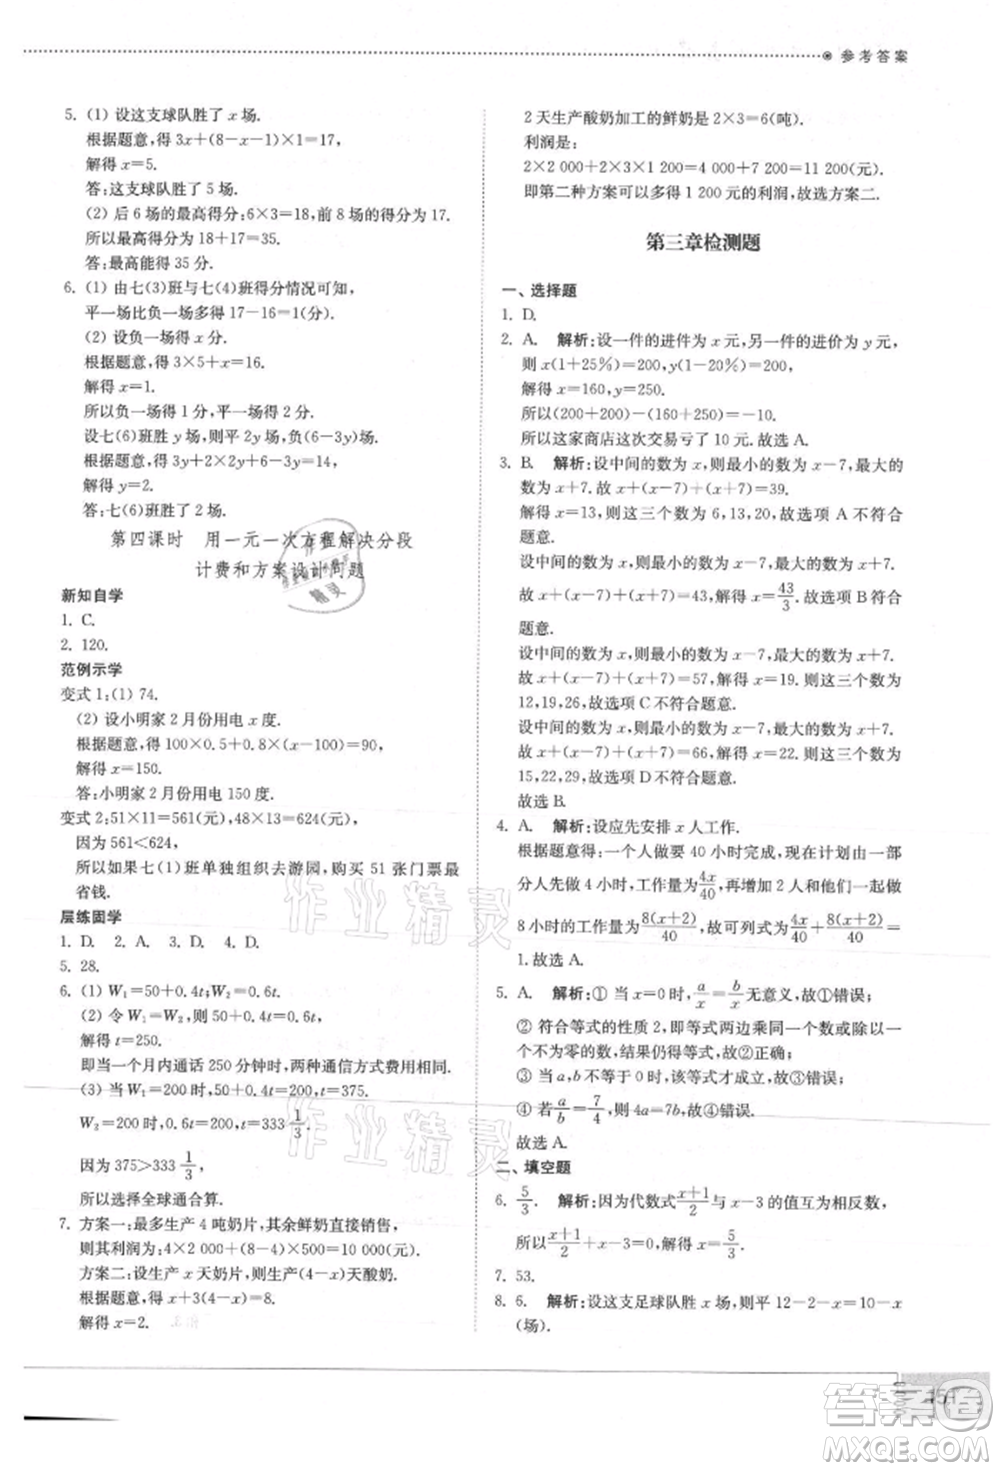 参考答案
5. (1) 设这支球队胜了 x 场.
根据题意,得 3x+(8-1-x)×1=17.
解得 x=5.
答:这支球队胜了 5 场.
(2) 后 6 场的最高得分:6×3=18,前 8 场得分为 17.
所以最高得分 18+17=35.
答:最高能得 35 分.
6. (1) 由七(3)班与七(4)班得分情况可知,
平一场比负一场多得 17-16=1(分).
(2) 设负一场得 x 分.
根据题意,得 3×5+x=16.
解得 x=1.
所以负一场得 1 分,平一场得 2 分.
设七(6)班胜 y 场,则平 2y 场,负(6-3y)场.
根据题意,得 3y+2×2y+(6-3y)=14.
解得 y=2.
答:七(6)班胜了 2 场.
第四课时 用一元一次方程解决分段
计费和方案设计问题
新知自学
1. C.
2. 120.
范例示学
变式 1:(1) 74.
(2) 设小明家 2 月份用电 x 度.
根据题意,得 100×0.5+0.8×(x-100)=90,
解得 x=150.
答:小明家 2 月份用电 150 度.
变式 2:51×11=561(元),48×13=624(元),
因为 561<624,
所以如果七(1)班单独组织去游园,购买 51 张门票最
省钱.
层练固学
1. D. 2. A. 3. D. 4. D.
5. 28.
6. (1) W₁=50+0.4t;W₂=0.6t.
(2) 令 W₁=W₂,则 50+0.4t=0.6t.
解得 t=250.
即当一个月内通话 250 分钟时,两种通信方式费用相同.
(3) 当 W₁=200 时,50+0.4t=200,t=375.
W₂=200 时,0.6t=200,t=333 1/3.
因为 375>333 1/3,
所以选择全球通合算.
7. 方案一:最多生产 4 吨奶片,其余鲜奶直接销售,
则其利润为:4×2 000+(8-4)×500=10 000(元).
方案二:设生产 x 天奶片,则生产(4-x)天酸奶.
根据题意,得 x+3(4-x)=8.
解得 x=2.
2 天生产酸奶加工的鲜奶是 2×3=6(吨).
利润是:
2×2 000+2×3×1 200=4 000+7 200=11 200(元).
即第二种方案可以多得 1 200 元的利润,故选方案二.
第三章检测题
一、选择题
1. D.
2. A. 解析:设一件的进件为 x 元,另一件的进价为 y 元,
则 x(1+25%)=200,y(1-20%)=200,
解得 x=160,y=250.
所以(200+200)-(160+250)=-10.
所以这家商店这次交易亏了 10 元.故选 A.
3. B. 解析:设中间的数为 x,则最小的数为 x-7,最大的
数为 x+7.故 x+(x-7)+(x+7)=39.
解得 x=13.故这三个数为 6,13,20,故选项 A 符合题意.
设中间的数为 x,则最小的数为 x-7,最大的数为 x+7.
故 x+(x-7)+(x+7)=43,解得 x=43/3.故选项 B 不符合
题意.
设中间的数为 x,则最小的数为 x-7,最大的数为 x+7.
故 x+(x-7)+(x+7)=57,解得 x=19.所以这三个数为
12,19,26,故选项 C 不符合题意.
设中间的数为 x,则最小的数为 x-7,最大的数为 x+7.
故 x+(x-7)+(x+7)=66,解得 x=22.则这三个数为
15,22,29,故选项 D 不符合题意.
故选 B.
4. A. 解析:设应先安排 x 人工作.
根据题意得:一个人做要 40 小时完成,现在计划由一部
分人先做 4 小时,工作量为 4x/40,再增加 2 人和他们一起做
8 小时的工作量为 8(x+2)/40,故可列式 4x/40+8(x+2)/40=
1.故选 A.
5. A. 解析:① 当 x=0 时,a/x=b/x 无意义,故①错误;
② 符合等式的性质 2,即等式两边乘同一个数或除以一
个不为零的数,结果仍得等式,故②正确;
③ 当 a,b 不等于 0 时,该等式才成立,故③错误;
④ 若 a/b=7/4,则 4a=7b,故④错误.
故选 A.
二、填空题
6. 5/3. 解析:因为代数式 x+1/2 与 x-3 的值互为相反数,
所以 x+1/2+x-3=0,解得:x=5/3.
7. 53.
8. 6. 解析:设这支足球队胜 x 场,则平 12-2-x=10-x
(场).
作业精灵
作业精灵
答案圈
MXQE.COM